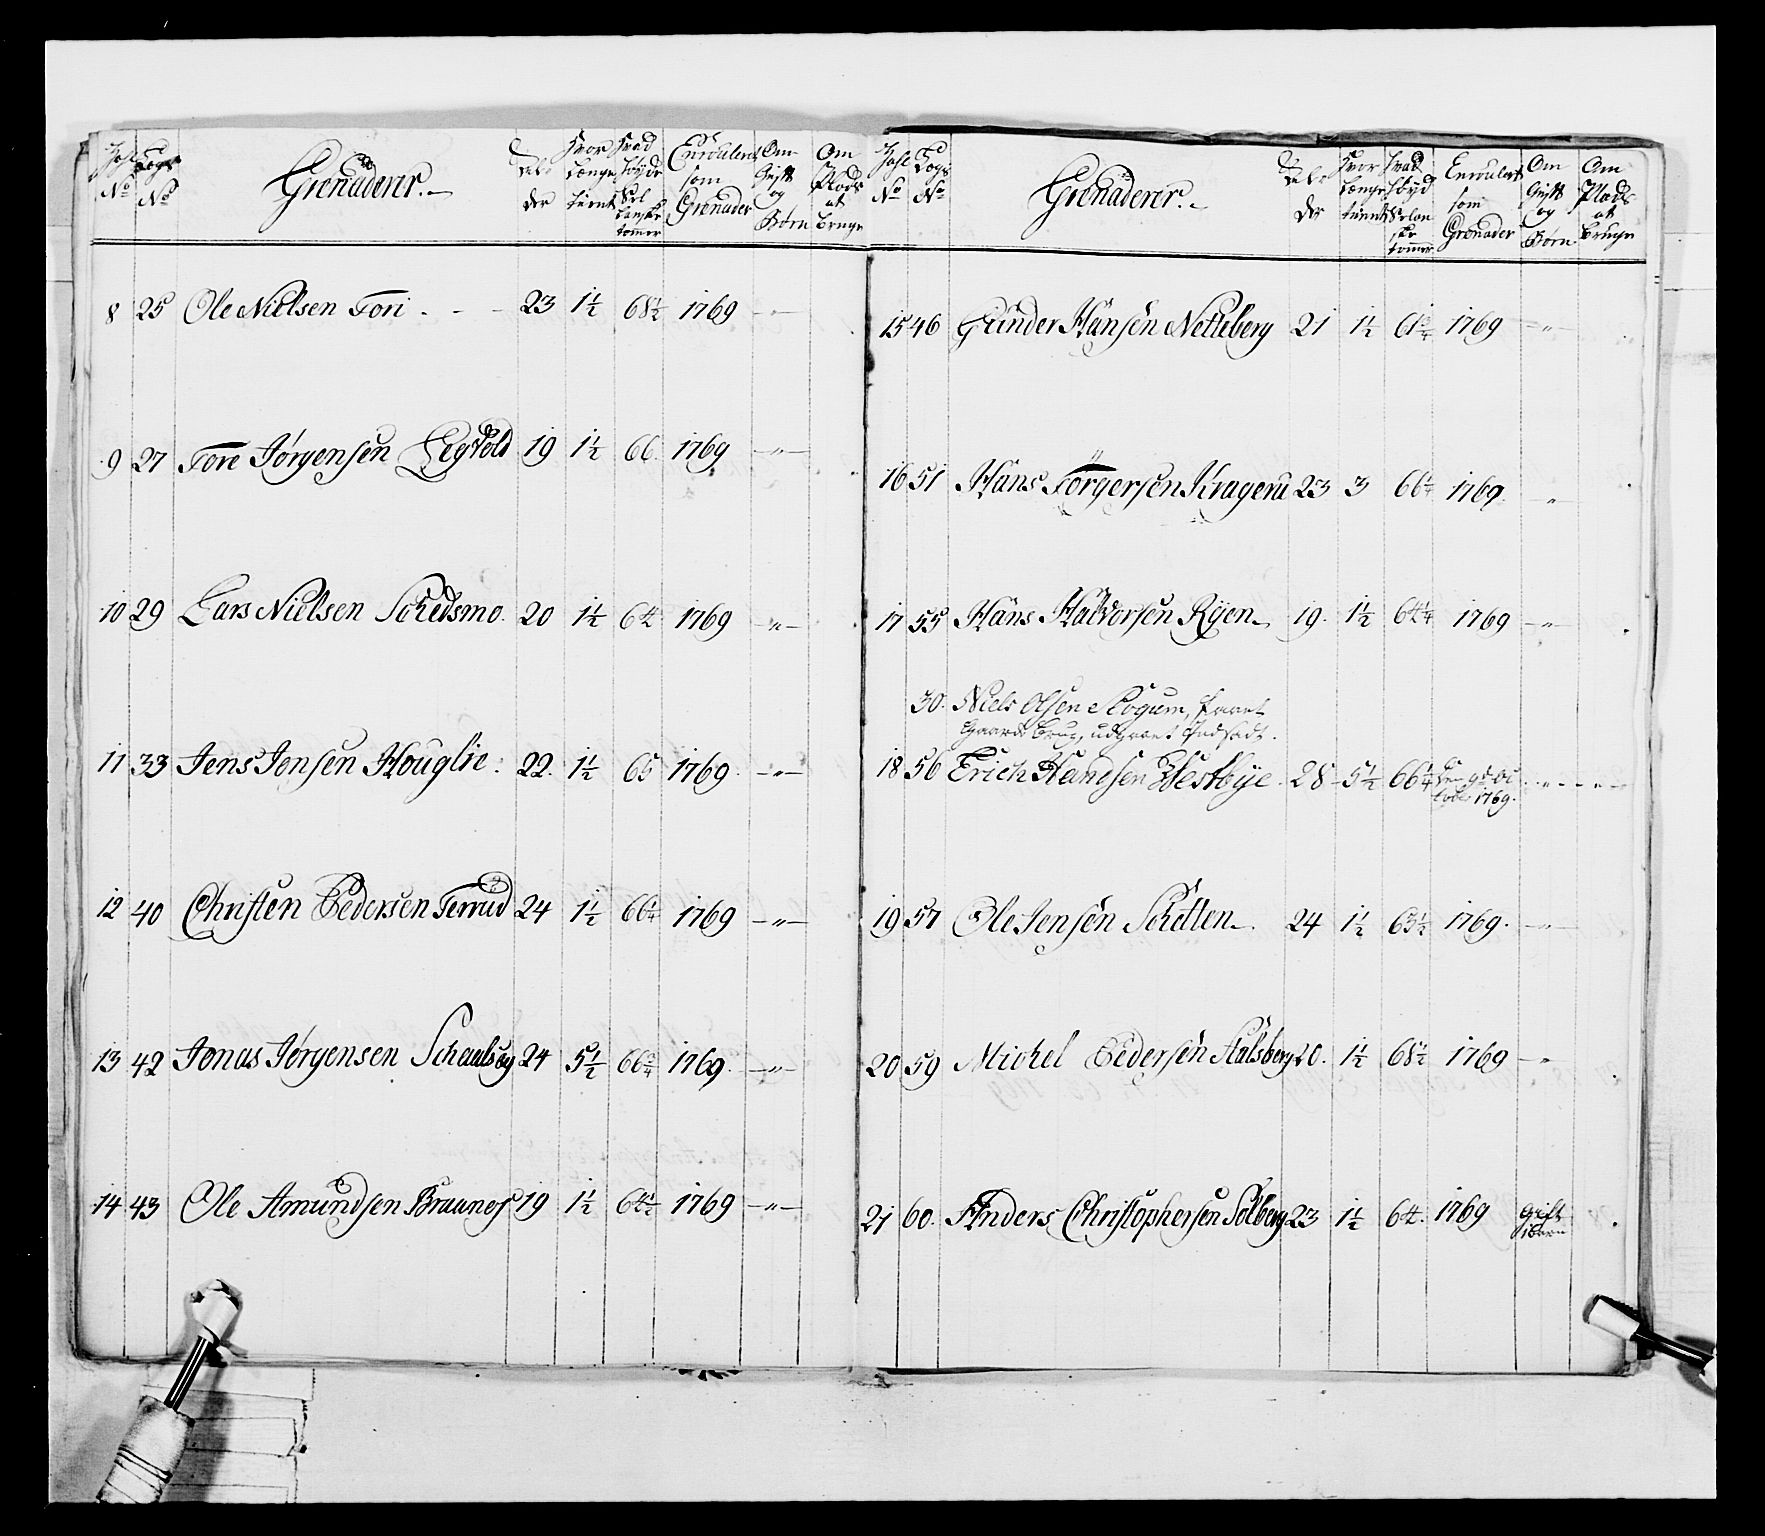 No No Grenaderer. Alder Hvor længe tient Hvad Høyde Enroulert som Grenader Om Gift og Børn Om Plads at bruge
8 25 Ole Nielsen Tori 23 1½ 68½ 1769 "
9 27 Tore Jørgensen Legvold 19 1½ 66 1769 "
10 29 Lars Nielsen Schedsmo 20 1½ 64 1769 "
11 33 Jens Jensen Houglie 22 1½ 65 1769 "
12 40 Christen Pedersen Terrud 24 1½ 66¼ 1769 "
13 42 Jonas Jørgensen 24 5½ 1769 "
14 43 Ole Amundsen Braanes 19 1½ 64½ 1769 "
No No Grenaderer. Alder Hvor længe tient Hvad Enroulert som Grenader Om Gift og Børn Om Plads at bruge
15 46 Gunder Hansen Netteberg 21 1½ 1769 "
16 51 Hans Torgersen Krageru 23 3 66¼ 1769 "
17 55 Hans Halvorsen Ryen 19 1½ 64¼ 1769 "
30. Niels Olsen Skogum,
Gaards Brug,
18 56 Erich Hansen Westbye 28 5½ 66¼ 1769 "
19 57 Ole Jensen Schetten 24 1½ 65½ 1769 "
20 59 Michel Pedersen Aalsberg 20 1½ 68½ 1769 "
21 60 Anders Christophersen Solberg 23 1½ 64 1769 gift 1 Barn